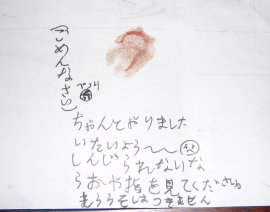 (ごめんなさい)
ちゃんとやりました
いたいよう〜〜
しんじられないな
らおや指を見てください
もううそはつきません